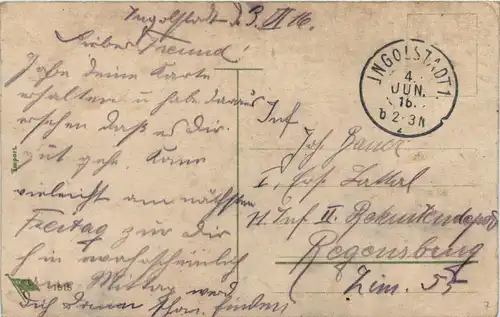 Ingolstadt d 3. VI 16.
Lieber Freund!
Habe deine Karte
erhalten u habe daraus
ersehen daß es dir
gut geht. Kann
vieleicht am nächsten
Freitag zur Dir
wahrscheinlich
Mittag werd
Dich dann schon finden
INGOLSTADT 1.
4.
JUN.
16.
2-3N
Inf
Joh Bauer
I, Ers. Battal
11 Inf II. Rekrutendepot
Regensburg
Zim. 55
Import.